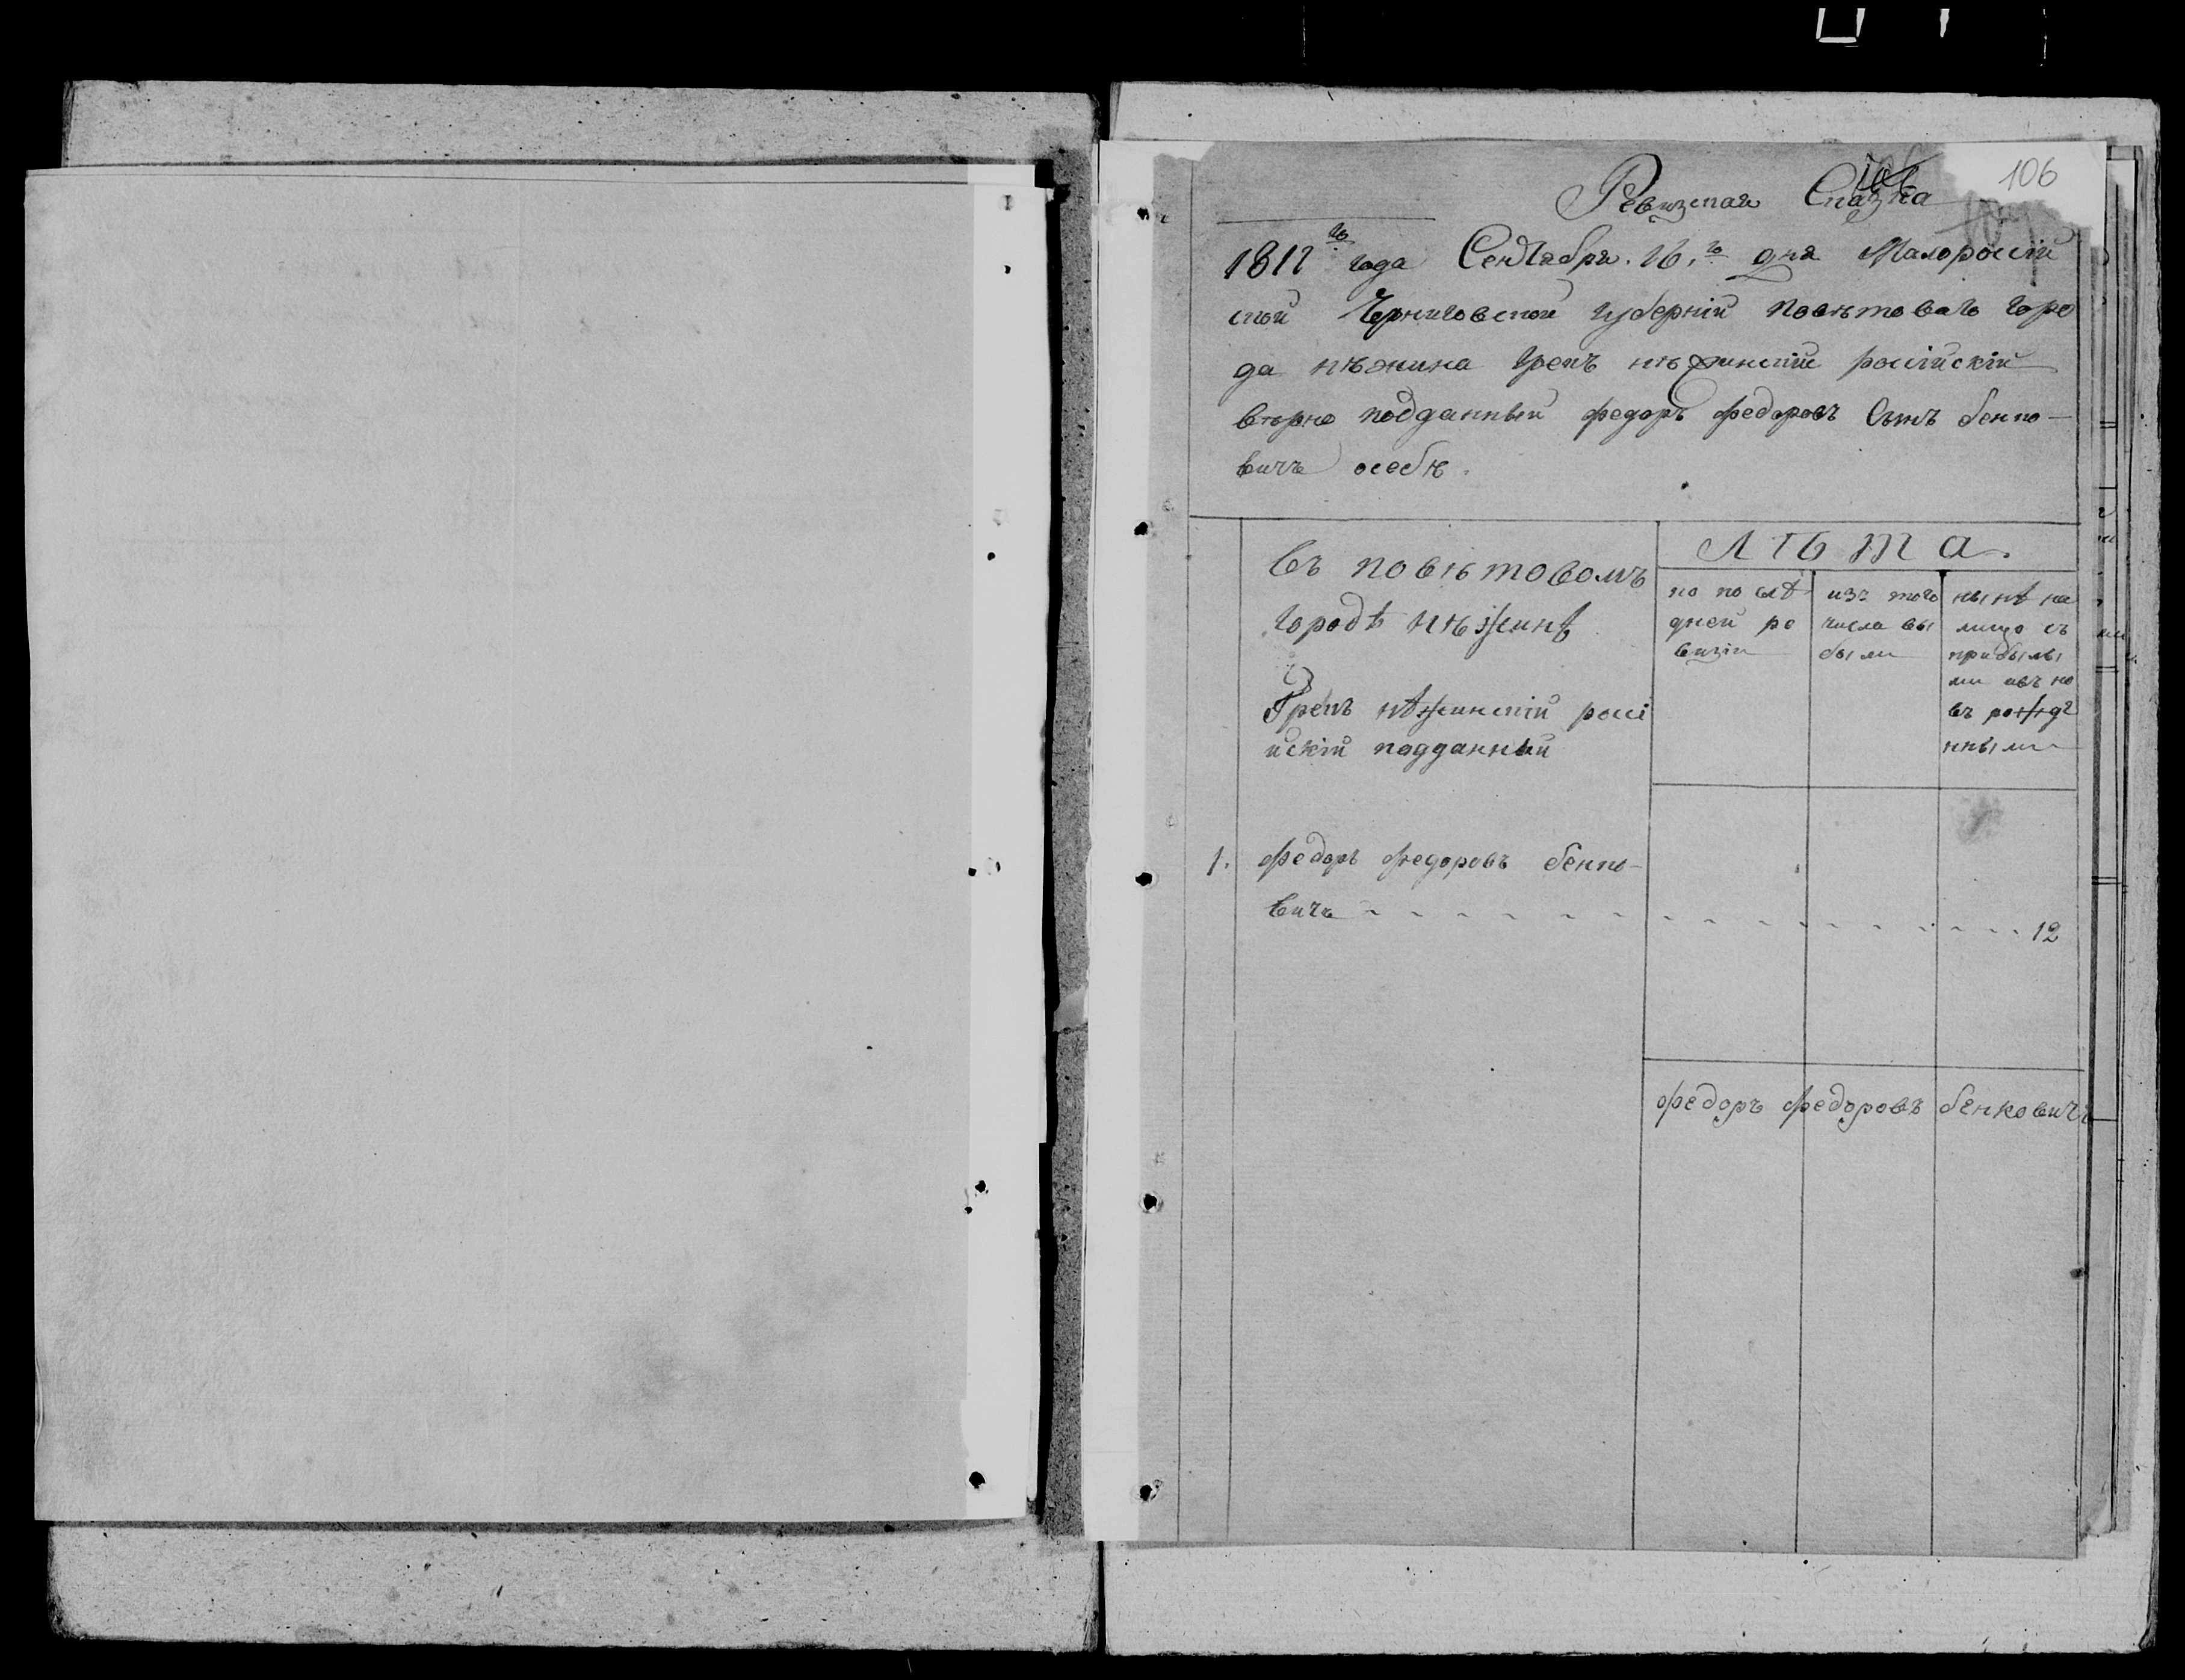 106
Ревизская Сказка
1811го года Сентября 16го дня Малороссій
ской Черниговской губерніи поветоваго горо
да нѣжина Грекъ нѣжинскій россійскій
вѣрно подданный федоръ федоровъ Сынъ бенко-
вичъ о себѣ.
въ повѣтовомъ
городѣ нѣжинѣ
Грекъ нѣжинскій россі
йскій подданный
Лѣта.
по послѣ
дней ре
визіи
изъ того
числа вы
были
нынѣ на
лицо съ
прибылы
ми и въ но
въ рожде
нными
1. федоръ федоровъ бенко-
вичъ 12
федоръ федоровъ бенковичъ